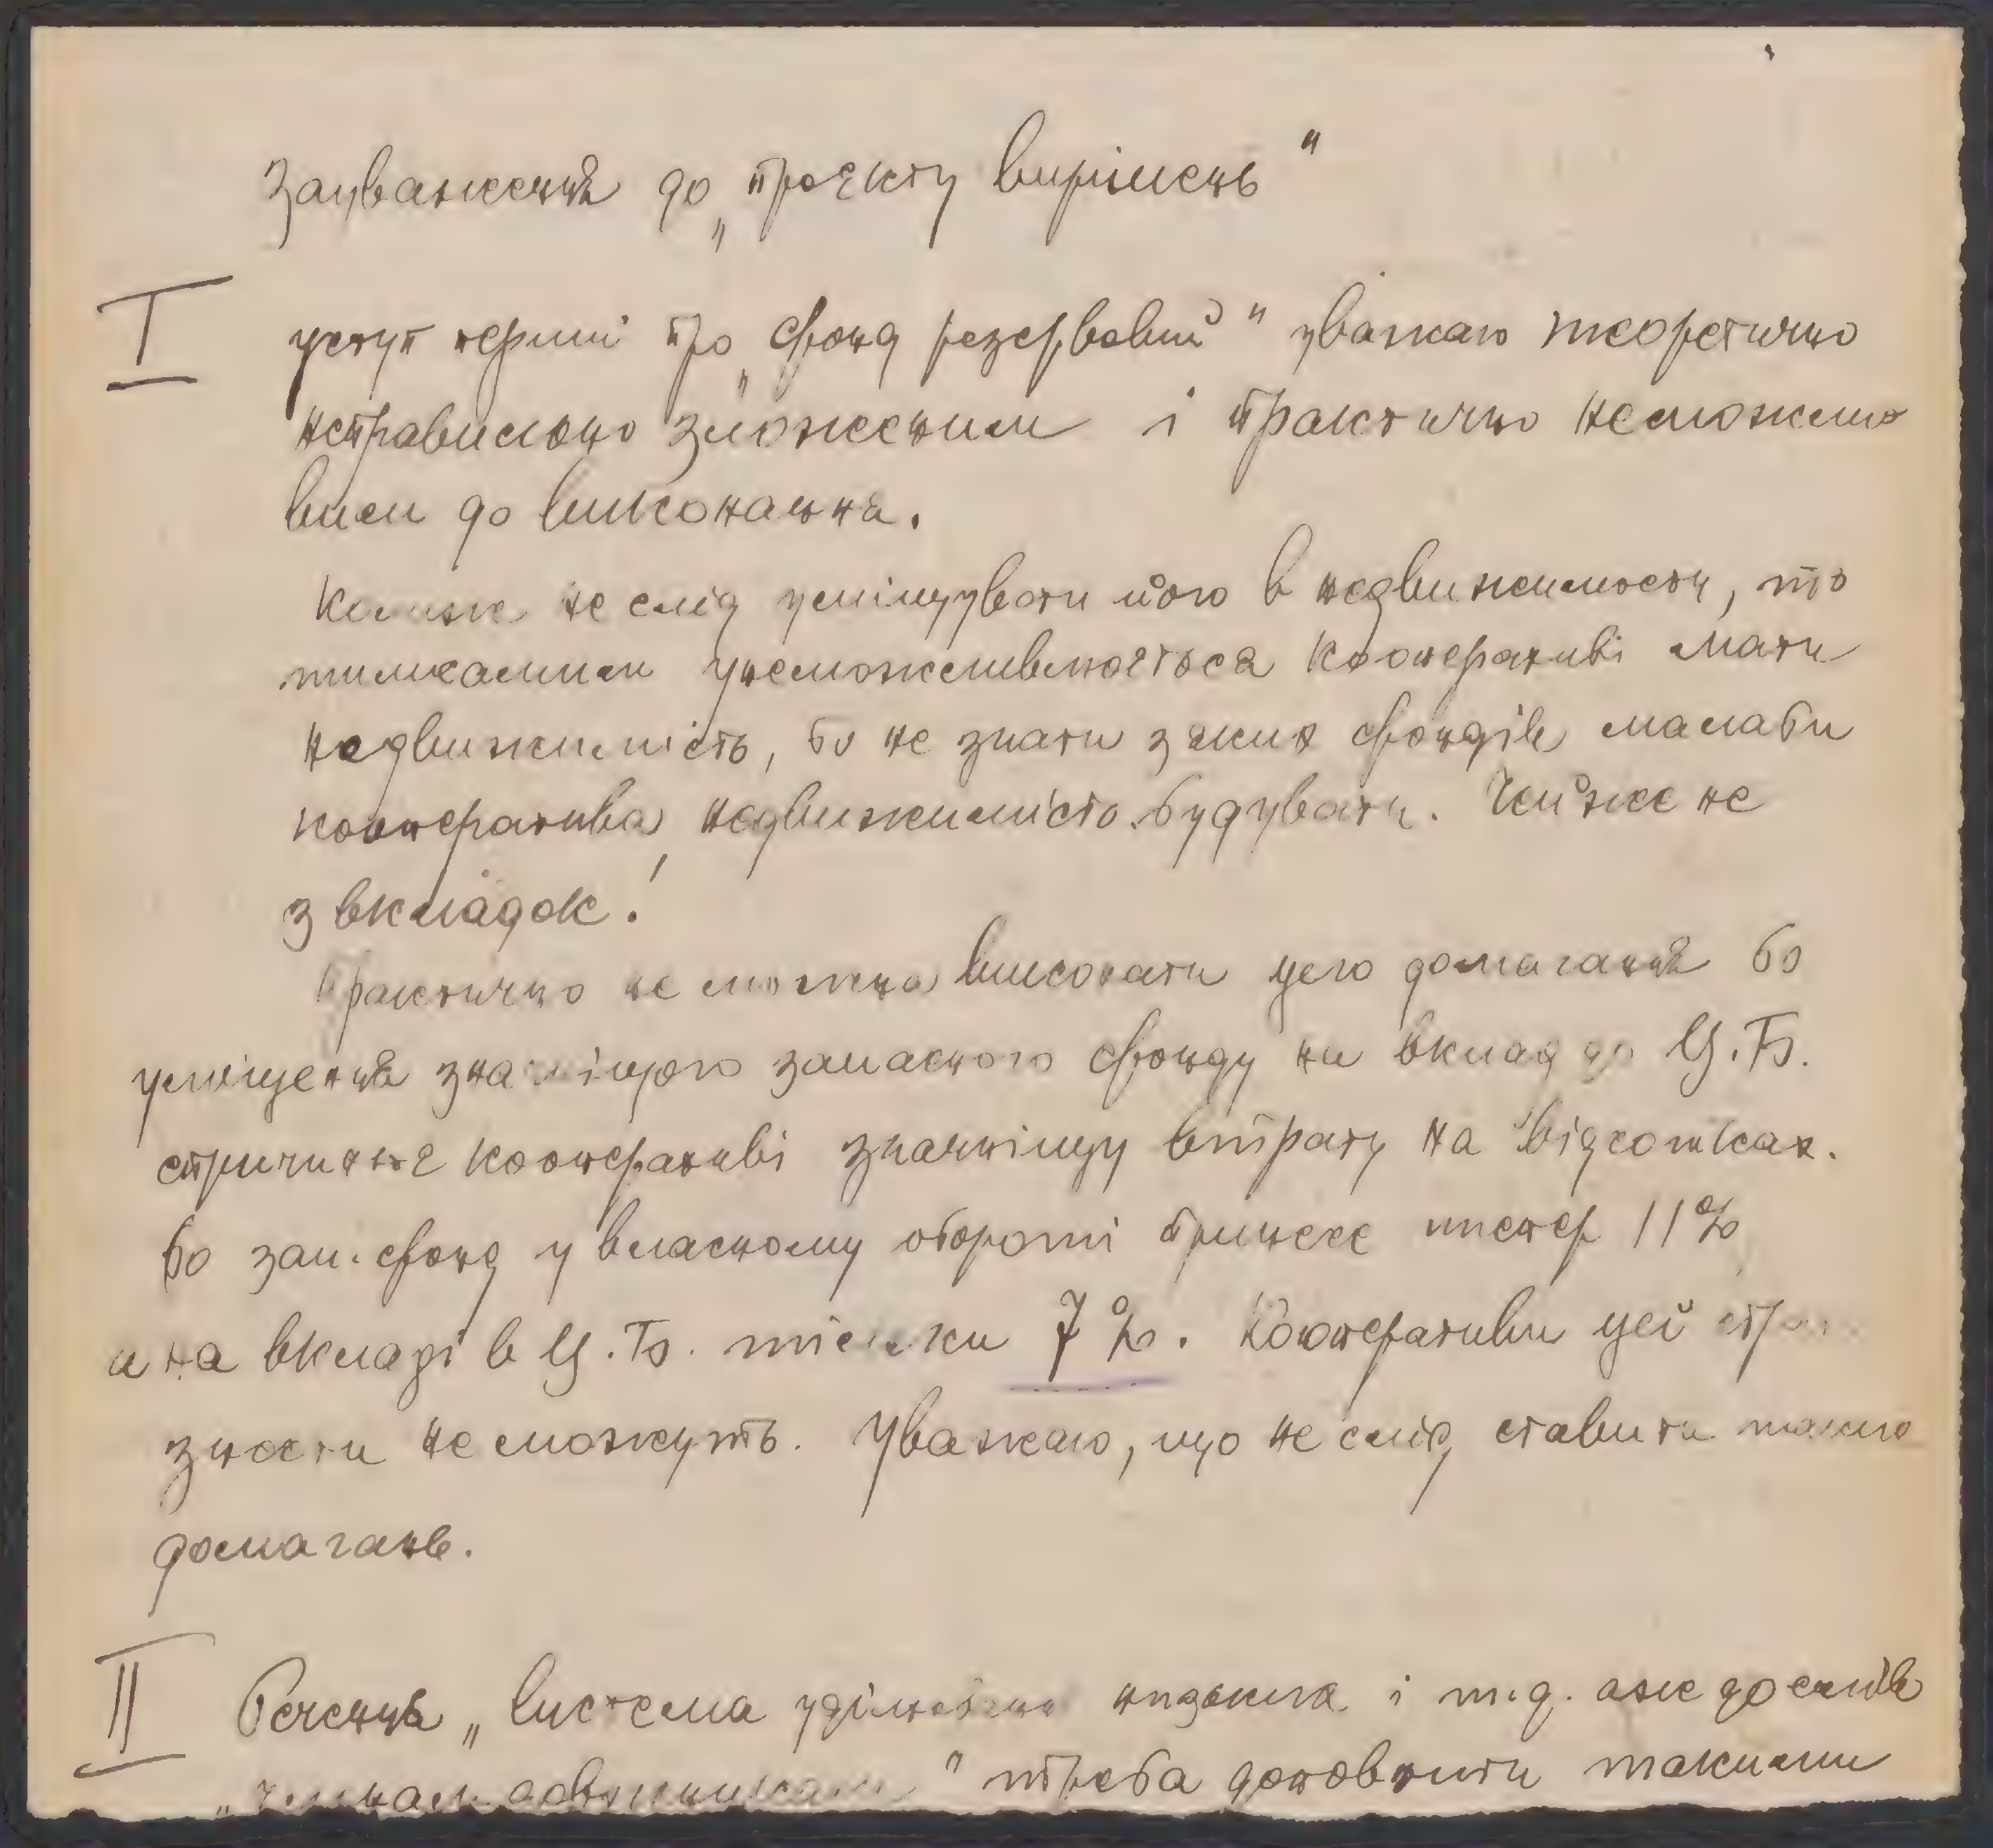 Зауваженнє до „проєкту вирішень“
I уступ перший про „фонд резервовий“ уважаю теоретично
неправильно зложеним і практично неможли-
вим до виконання.
Коли не слід уміщувати його в недвижимости, то
тимсамим унеможливлюється кооперативі мати
недвижимість, бо не знати з яких фондів малаби
кооператива недвижимість будувати. Чейже не
з вкладок!
Практично не можна виконати цего домагання бо
уміщеннє значнішого запасного фонду на вклад до Ц.Б.
спричиняє кооперативі значнішу втрату на відсотках.
бо зап. фонд у власному обороті принесе тепер 11%
а на вкладі в Ц.Б. тільки 7%. Кооперативи цеї
зности не можуть. Уважаю, що не слід ставити такого
домагань.
II Реченнє „система уділювання і т.д. аж до слів
“ треба доповнити такими